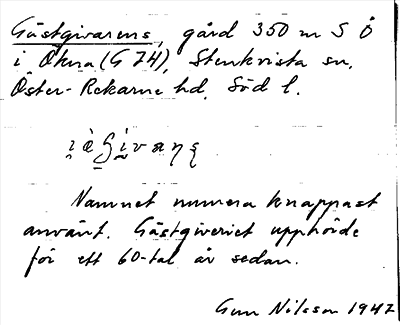 Gästgivarens, gård 350 m S Ö
i Ökna (G 74), Stenkvista sn,
Öster-Rekarne hd, Söd l.
Namnet numera knappast
använt. Gästgiveriet upphörde
för ett 60-tal år sedan.
Gun Nilsson 1947